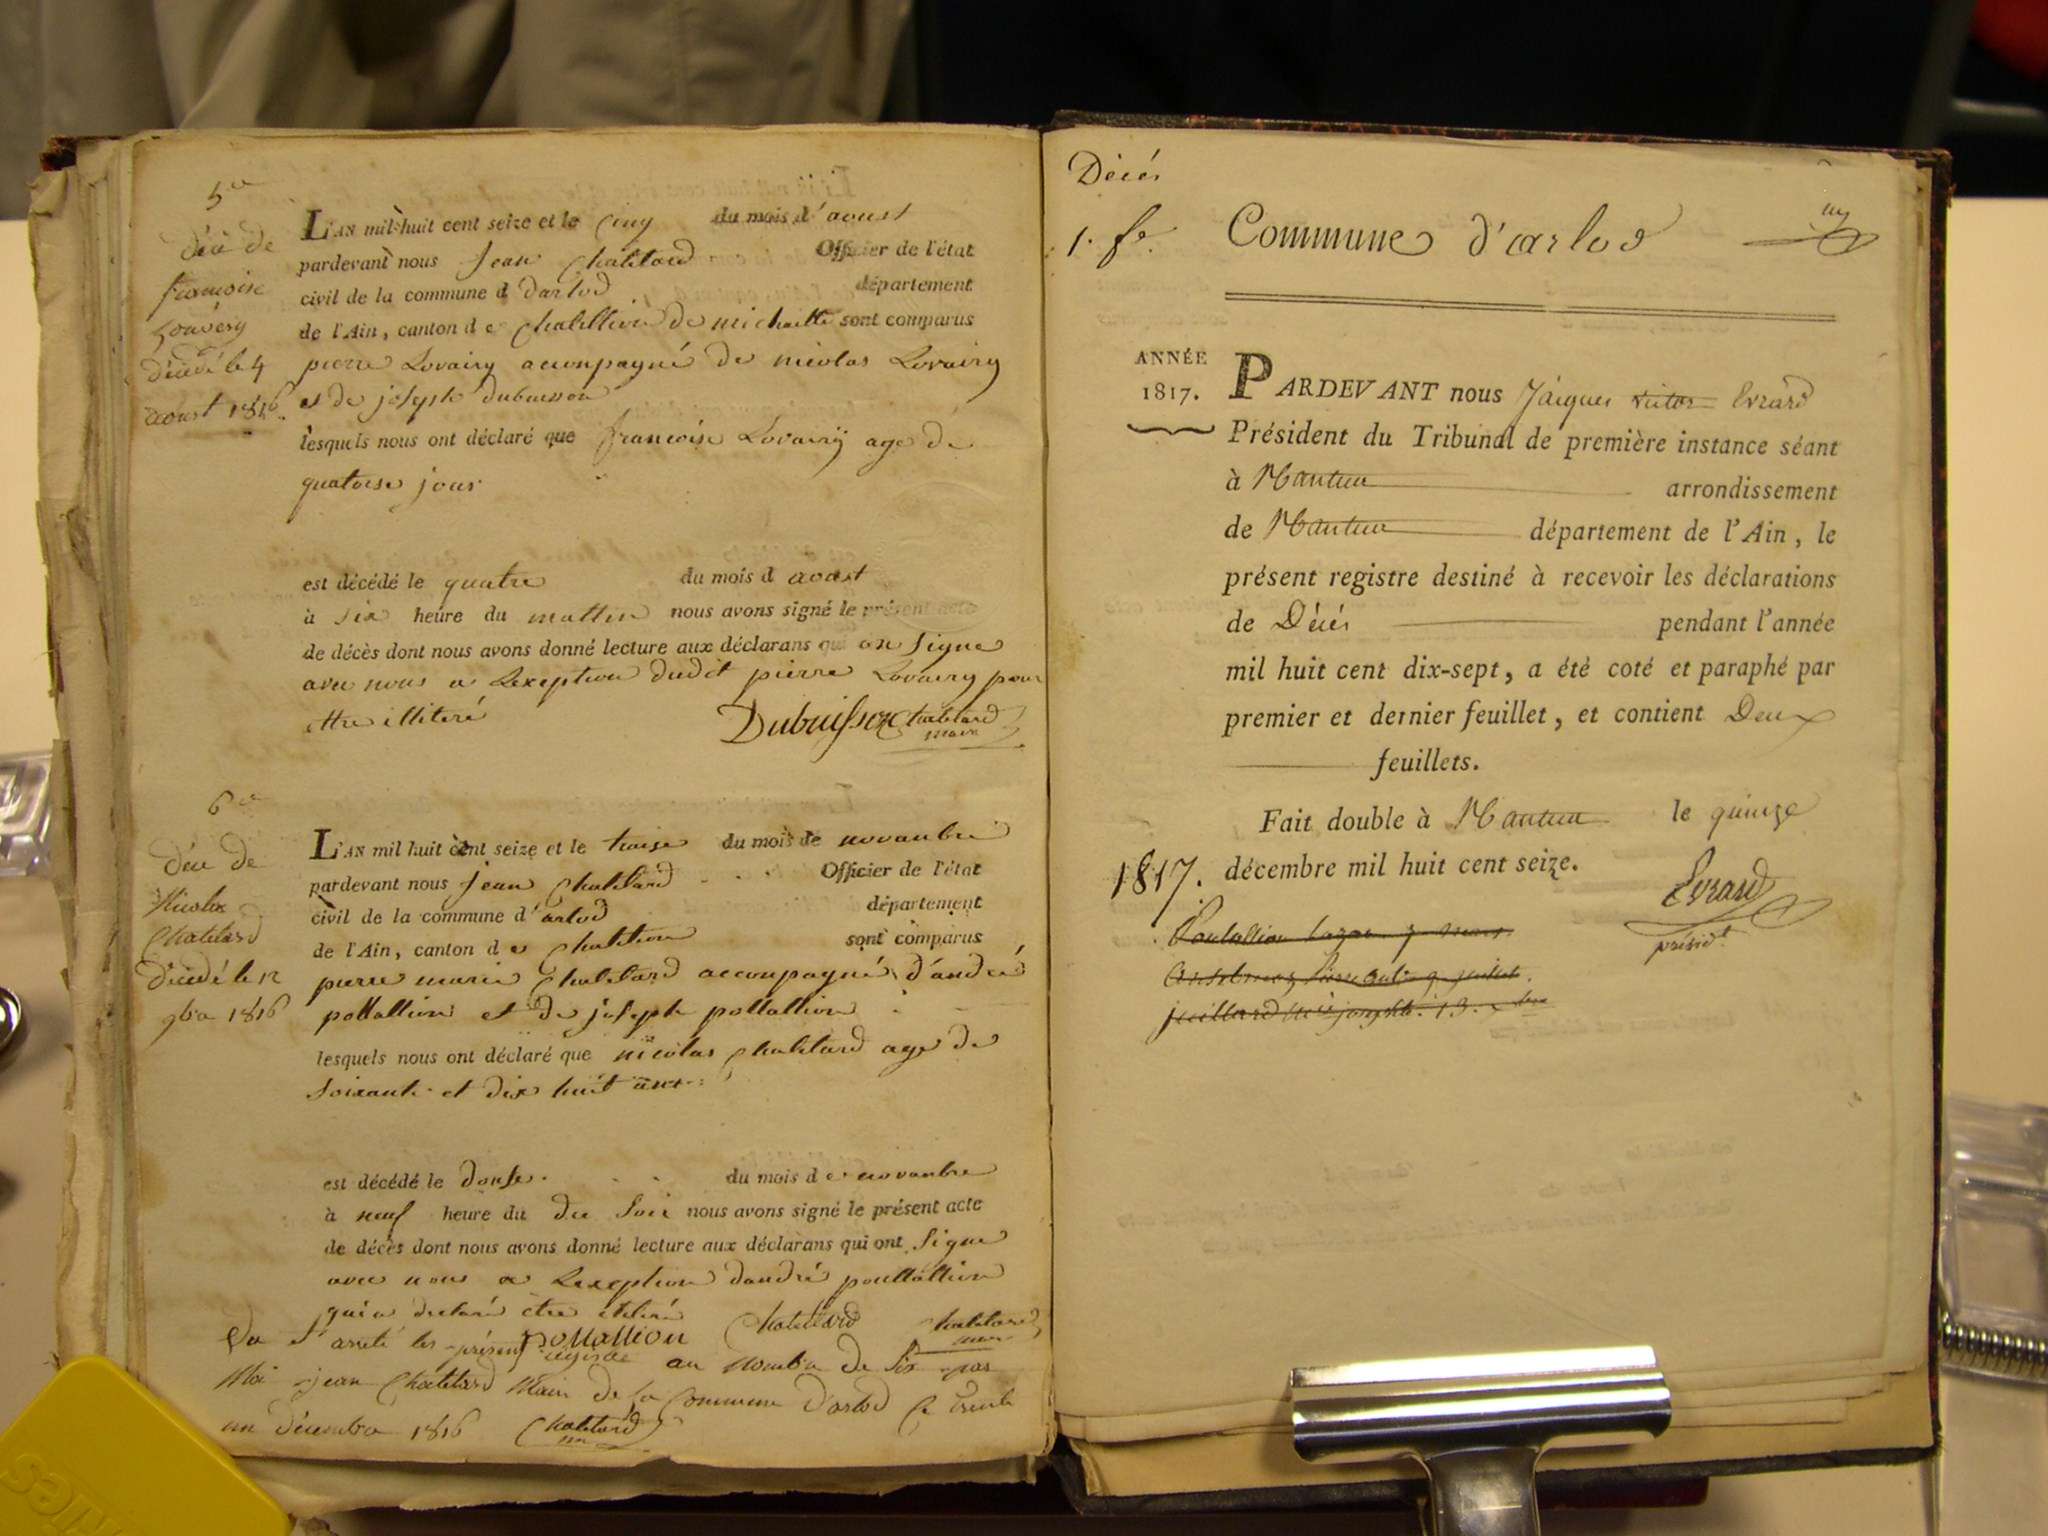 5e
L'AN mil huit cent seize et le cinq du mois d'aoust
pardevant nous jean Chatelard Officier de l'état
civil de la commune d darlod département
de l'Ain, canton de Chatillion de michaille sont comparus
pierre Lovairy acconpagné de nicolas Lovairy
et de joseph dubuisson
lesquels nous ont déclaré que francoise Lovairy age de
quatorse jour
est décédé le quatre du mois d aoust
à six heure du mattin nous avons signé le présent acte
de décès dont nous avons donné lecture aux déclarans qui on signe
avec nous a Lexeption dudit pierre Lovairy pour
ettre illiteré
Dubuisson Chatelard
maire
décé de
francoise
décédé le 4
aoust 1816
6e
L'AN mil huit cent seize et le traise du mois de novanbre
pardevant nous jean Chatelard Officier de l'état
civil de la commune d'arlod département
de l'Ain, canton de Chatition sont comparus
pierre marie Chatelard acconpagné d'andré
pottallion et de joseph pottallion
lesquels nous ont déclaré que nicolas Chatelard age de
soixante et dix huit ans
est décédé le douse du mois de novanbre
à neuf heure du du soir nous avons signé le présent acte
de décès dont nous avons donné lecture aux déclarans qui ont signe
avec nous a Lexeption dandré pouttallion
qui a declaré etre iliteré
pottallion Chatelard Chatelard
décé de
Chatelard
décédé le 12
9bre 1816
arreté les présent registre au nombre de six par
Moi jean Chatelard Maire de la Commune Darlod Ce trente
un décembre 1816 Chatelard
Décés
1. fe. Commune d'arlod
ANNÉE
1817.
PARDEVANT nous Jâiques victor Evrard
Président du Tribunal de première instance séant
à Nantua arrondissement
de Nantua département de l'Ain, le
présent registre destiné à recevoir les déclarations
de Décés pendant l'année
mil huit cent dix-sept, a été coté et paraphé par
premier et dernier feuillet, et contient Deux
feuillets.
Fait double à Nantua le quinze
décembre mil huit cent seize.
Evrard
présidt
1817.